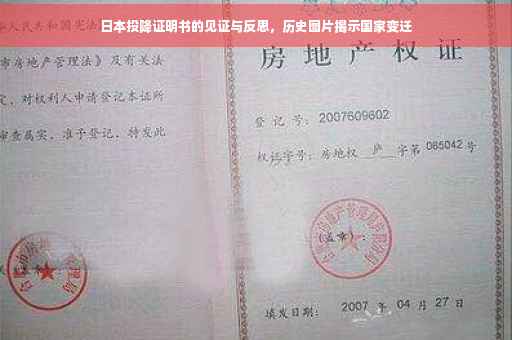 日本投降证明书的见证与反思，历史图片揭示国家变迁
人民共和国宪法
市房地产管理法》及有关法
定，对权利人申请登记本证所
审查属实，准予登记，特发此
房地产权证
登 记 号：2007609602
权证字号：房地权 庐 字第 065042 号
(盖章)：
填发日期： 2007 年 04 月 27 日